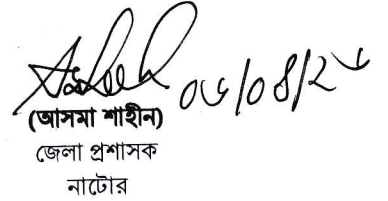 ০৬/০৪/২৬
(আসমা শাহীন)
জেলা প্রশাসক
নাটোর